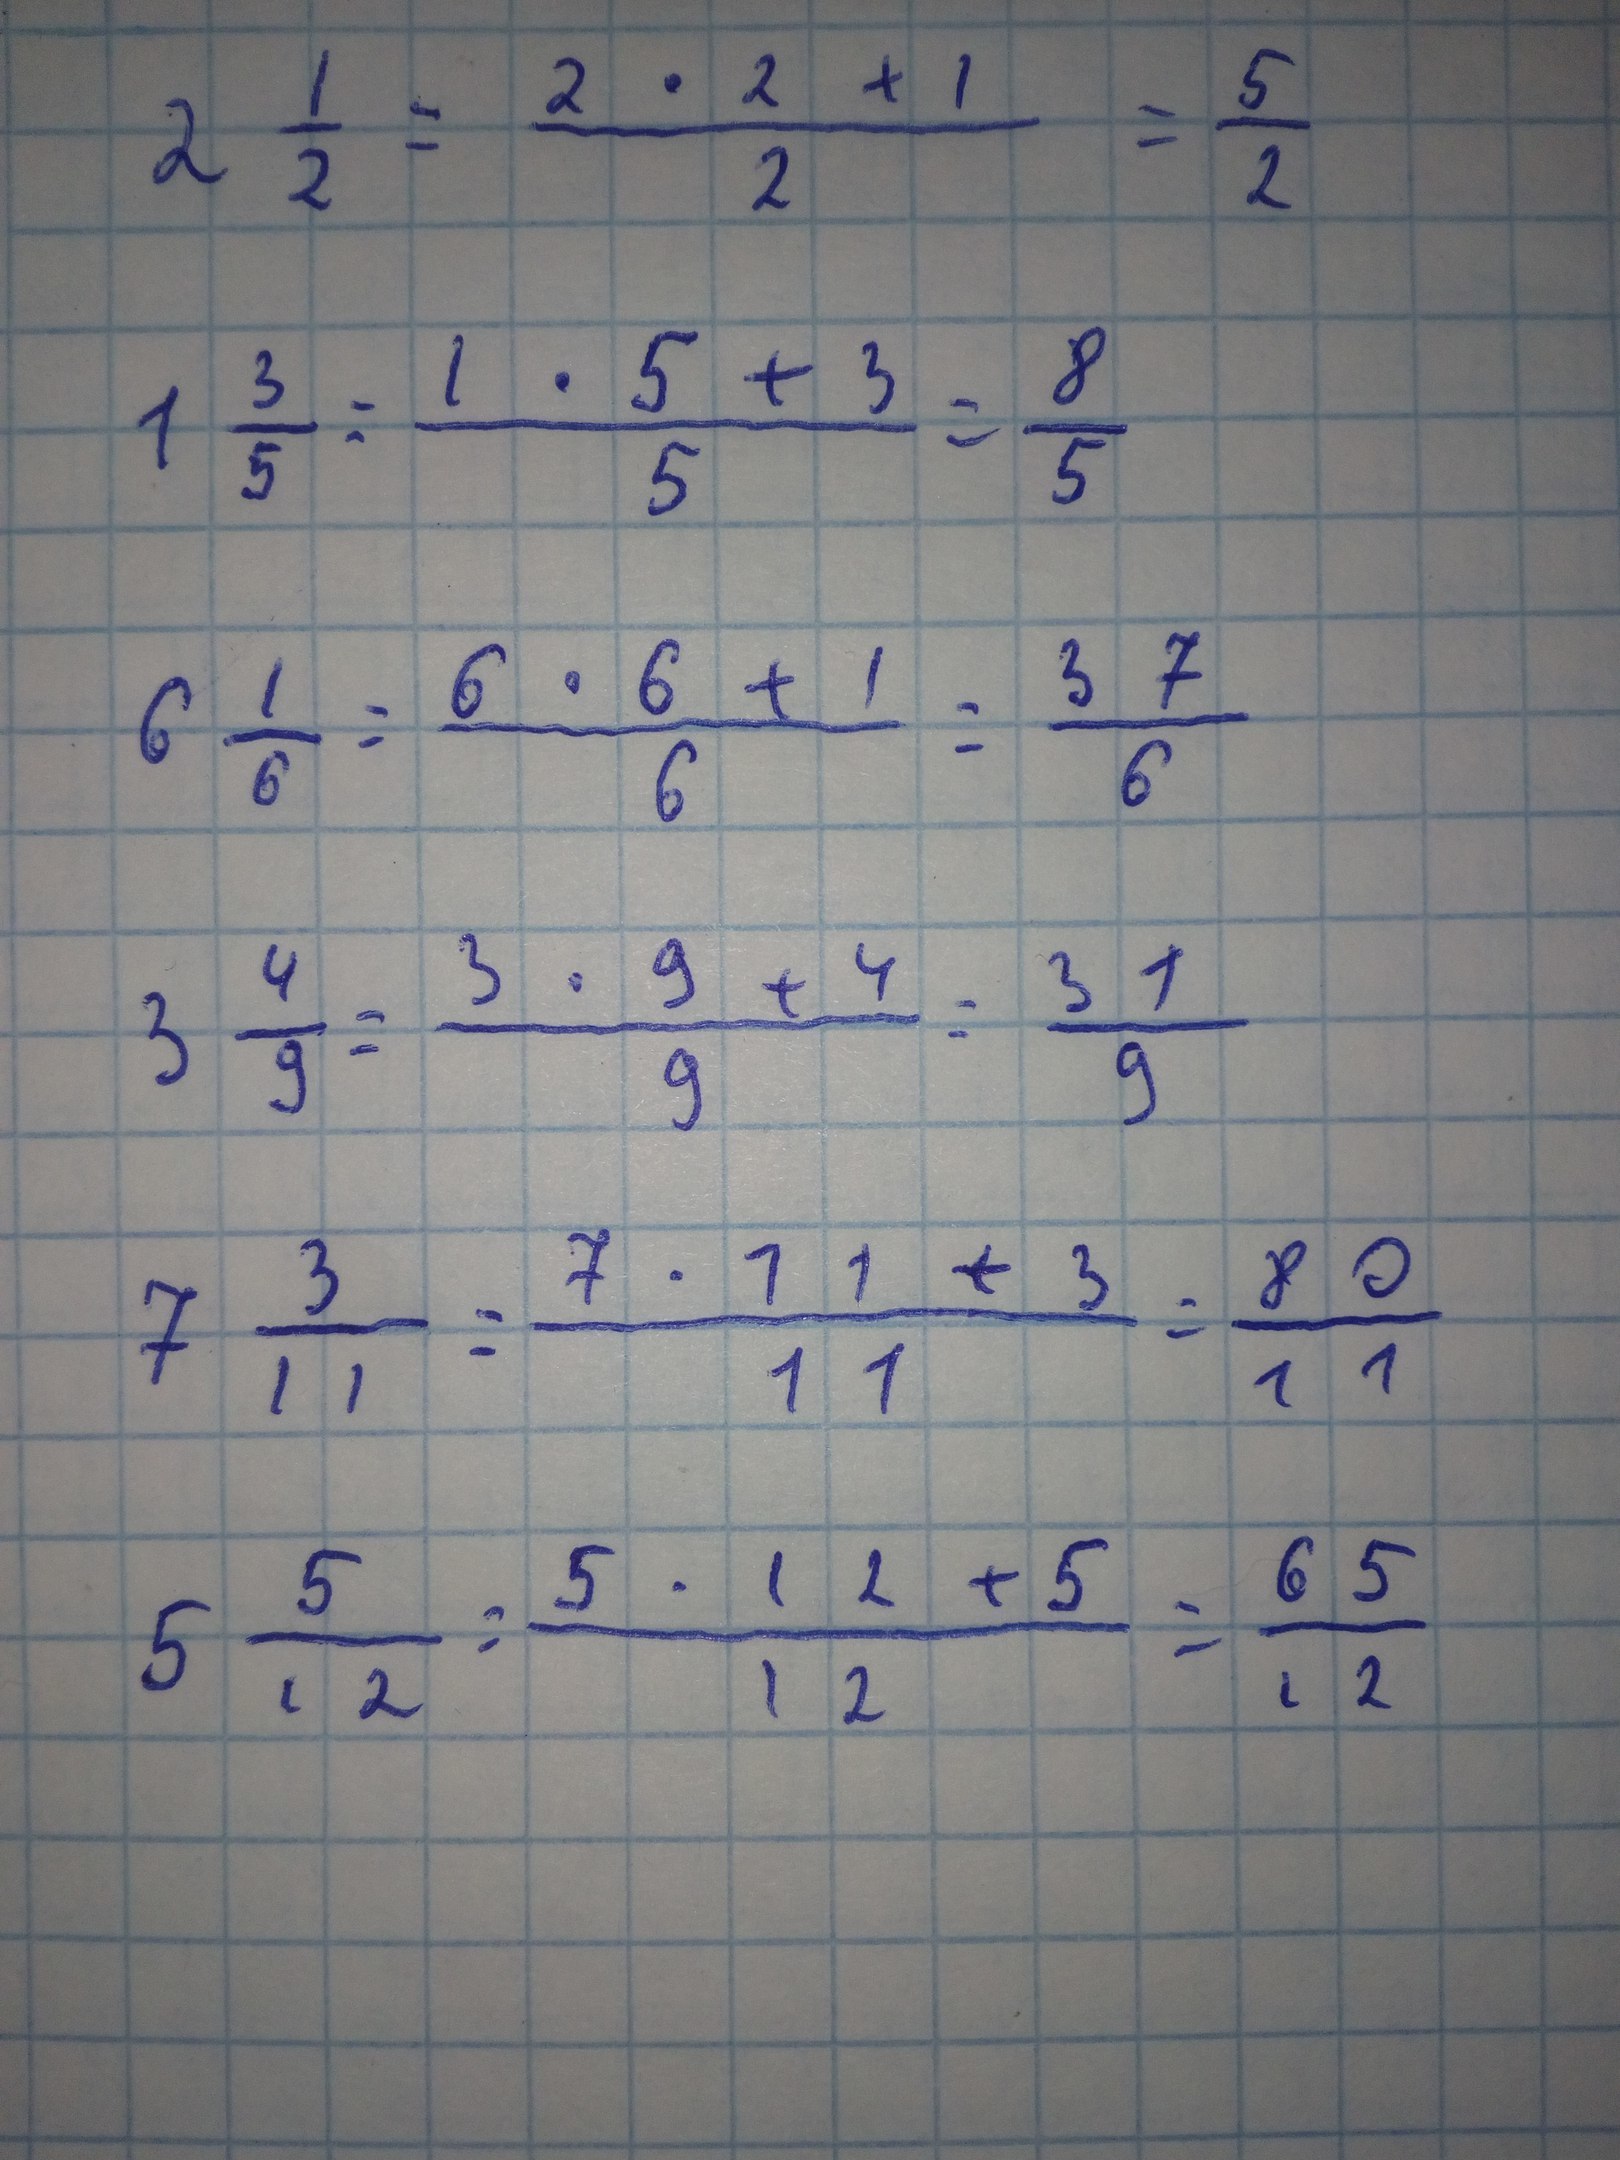 2 1/2 = (2 · 2 + 1)/2 = 5/2
1 3/5 = (1 · 5 + 3)/5 = 8/5
6 1/6 = (6 · 6 + 1)/6 = 37/6
3 4/9 = (3 · 9 + 4)/9 = 31/9
7 3/11 = (7 · 11 + 3)/11 = 80/11
5 5/12 = (5 · 12 + 5)/12 = 65/12